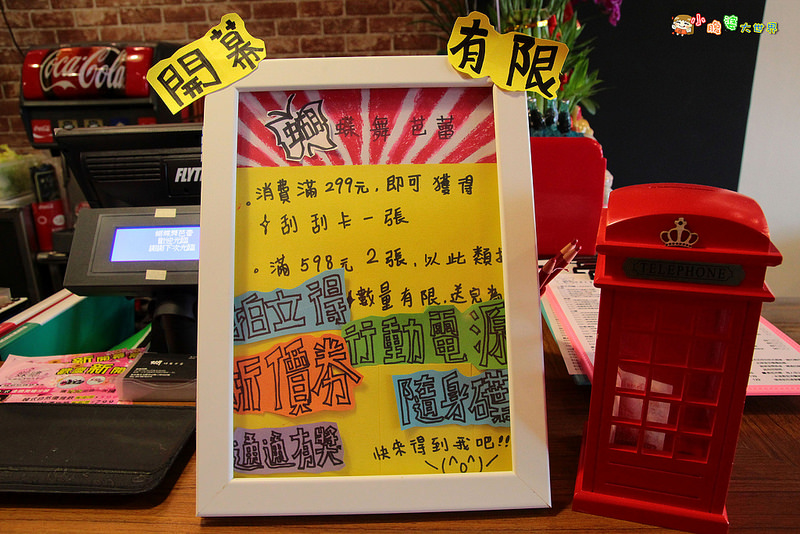 開幕
有限
小腹婆大世界
Coca-Cola
FLYT
蝴蝶舞芭蕾
歡迎光臨
謝謝下次光臨
。消費滿299元,即可獲得
刮刮卡一張
。滿598元2張,以此類推
數量有限,送完為
拍立得
行動電源
折價券
隨身碟
通通有獎
快來得到我吧!!
\(^o^)/
TELEPHONE